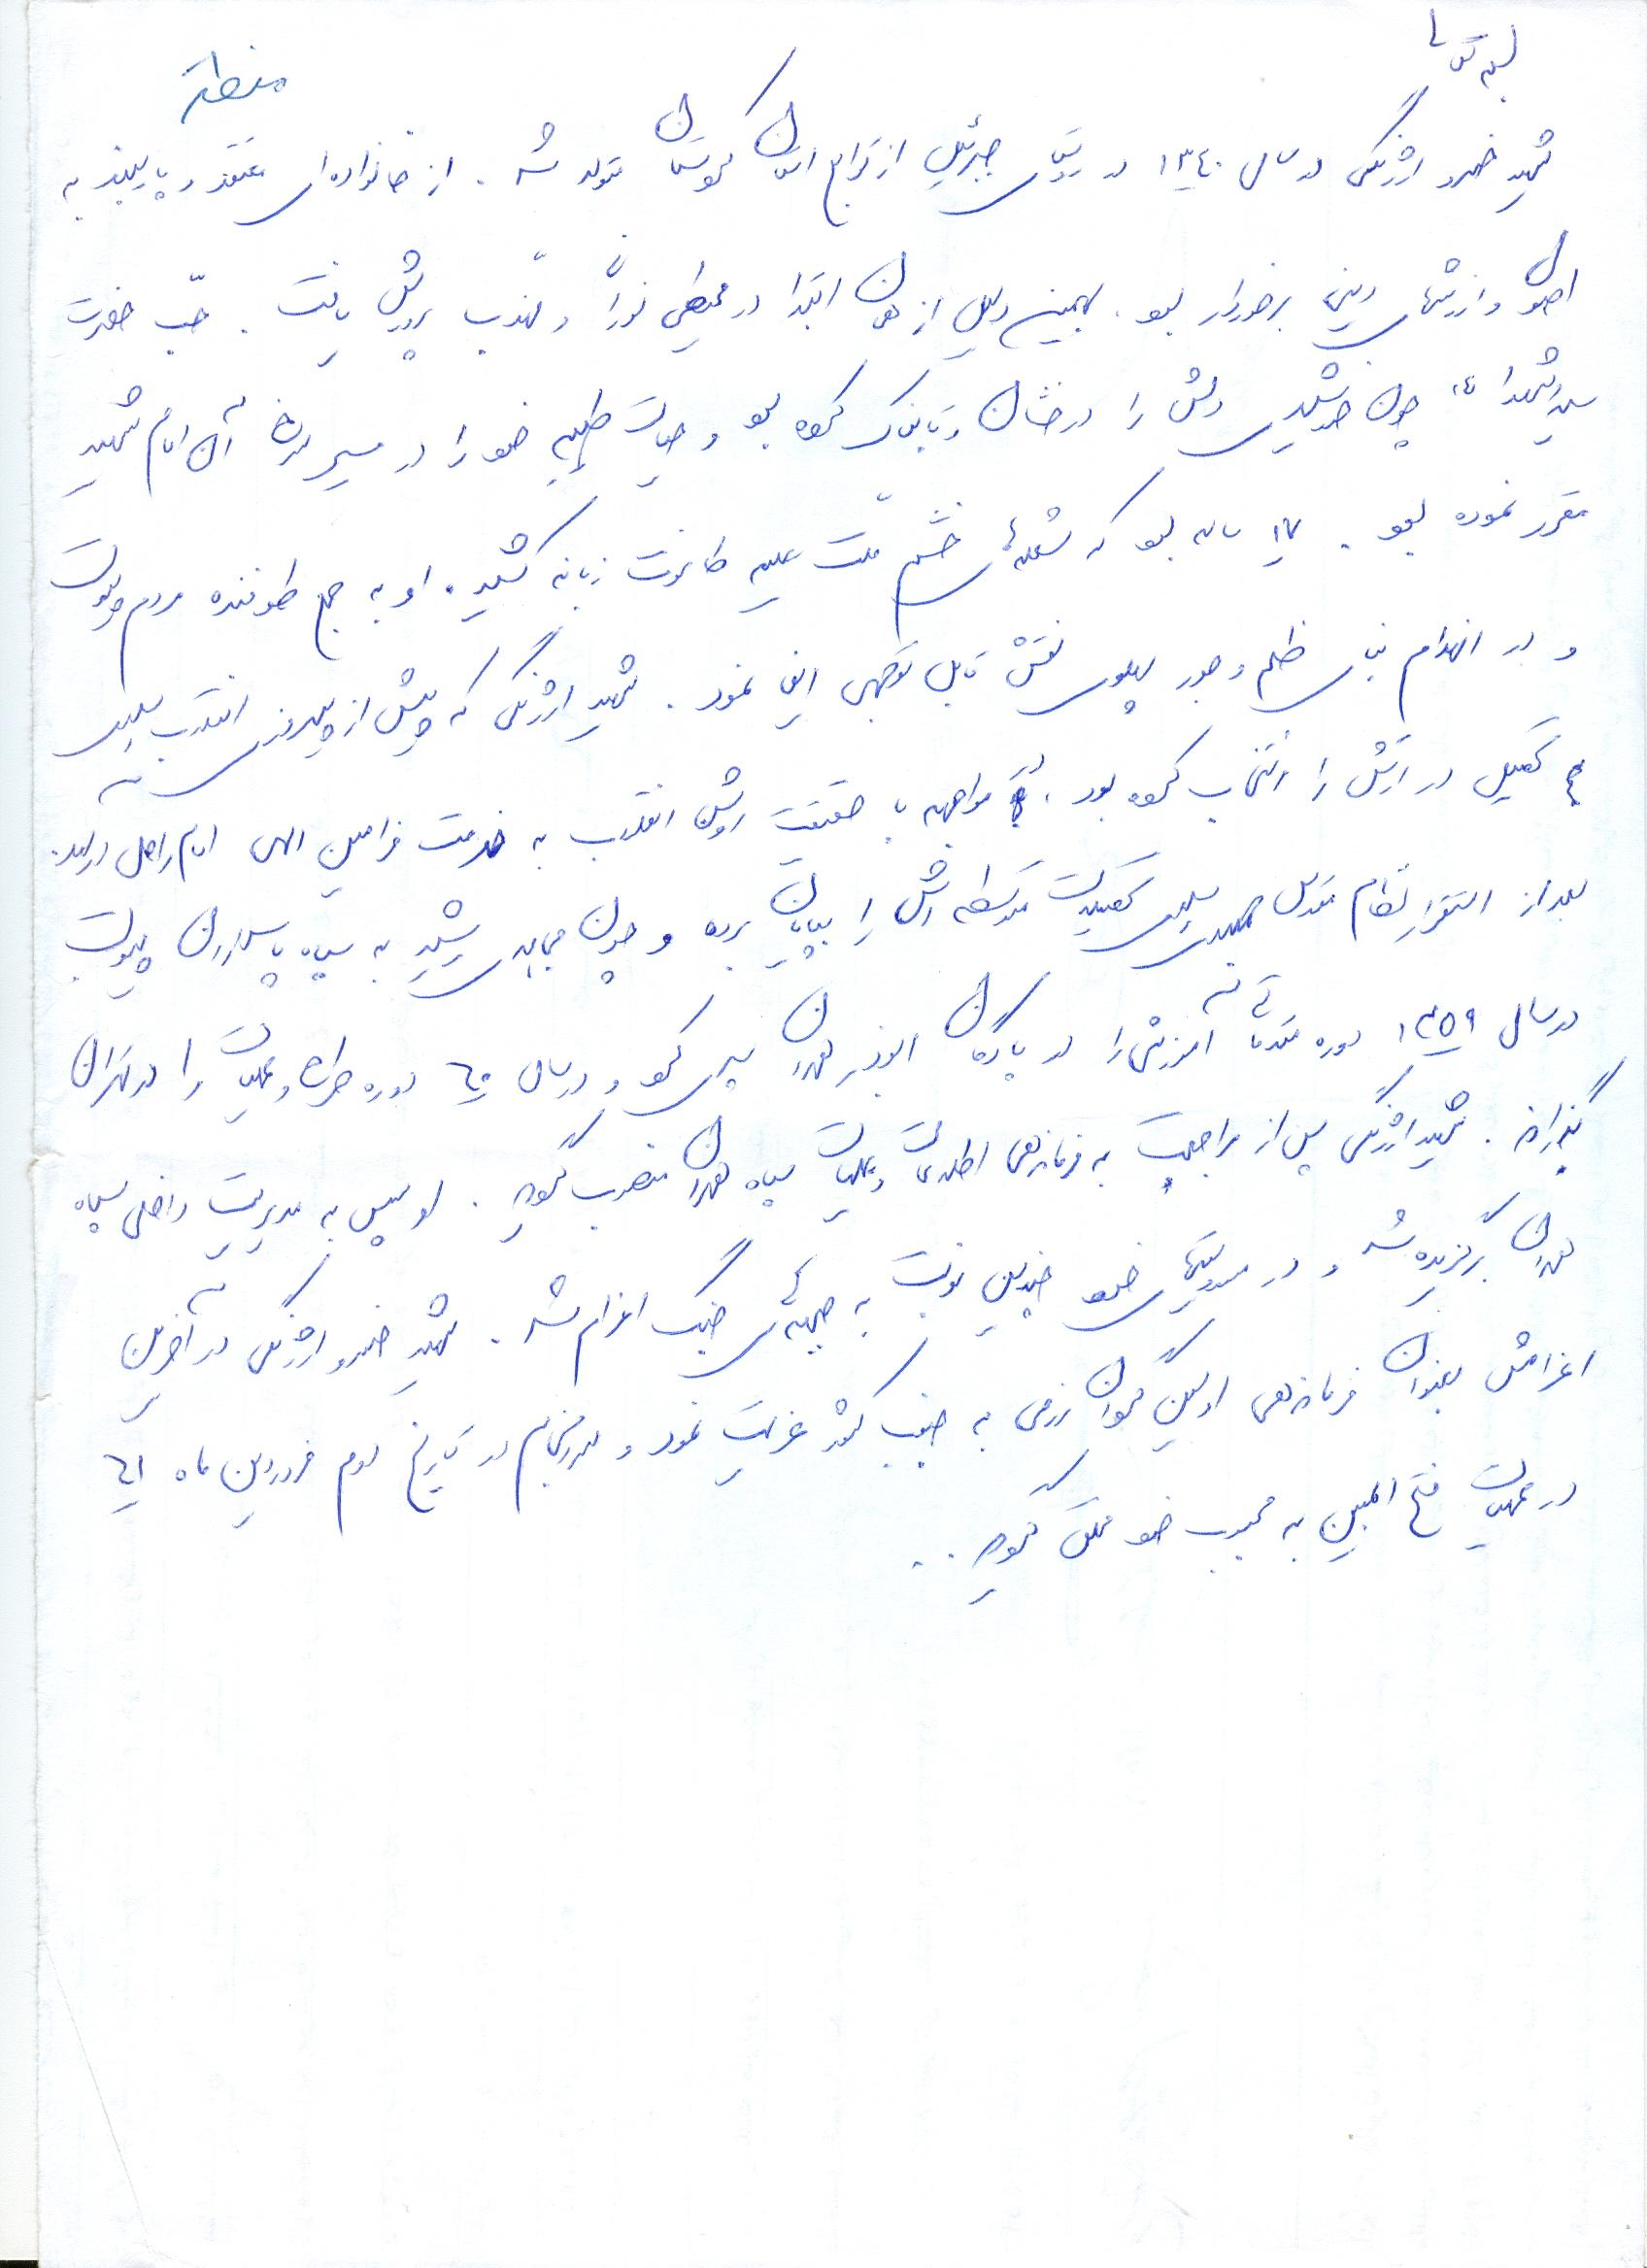 بسمه تعالی
منطقه
شهید خسرو ارژنگی در سال ۱۳۴۰ در روستای جبرئیل از توابع استان لرستان متولد شد . از خانواده‌ای معتقد و پایبند به
اصول و ارزشهای دینی برخوردار بود . بهمین دلیل از همان ابتدا در محیطی نورانی و مهذب پرورش یافت . حبّ حضرت
سیدالشهداء ع چون خورشیدی دلش را درخشان و تابناک کرده بود و حیات طیبه خود را در مسیر سرخ آن امام شهید
مقرر نموده بود . ۱۷ ساله بود که شعله‌های خشم ملّت علیه طاغوت زبانه کشید . او به جمع طوفنده مردم پیوست
و در انهدام بنای ظلم و جور پهلوی نقش قابل توجهی ایفا نمود . شهید ارژنگی که پیش از پیروزی انقلاب اسلامی
تحصیل در ارتش را انتخاب کرده بود ، در مواجهه با حقیقت روشن انقلاب به خدمت فرامین الهی امام راحل درآمد .
بعد از استقرار نظام مقدس جمهوری اسلامی تحصیلات متوسطه ارتش را بپایان برده و چون مجاهدی رشید به سپاه پاسداران پیوست
در سال ۱۳۵۹ دوره مقدماتی آموزشی را در پادگان ابوذر همدان سپری کرد و در سال ۶۰ دوره طرح و عملیات را در تهران
گذراند . شهید ارژنگی پس از مراجعت به فرماندهی اطلاعات و عملیات سپاه همدان منصوب گردید . او سپس به مدیریت داخلی سپاه
همدان برگزیده شد و در مسئولیتهای خود چندین نوبت به جبهه‌های جنگ اعزام شد . شهید خسرو ارژنگی در آخرین
اعزامش بعنوان فرماندهی اولین گردان رزمی به جنوب کشور عزیمت نمود و سرانجام در تاریخ دوم فروردین ماه ۶۱
در عملیات فتح المبین به محبوب خود ملحق گردید . .